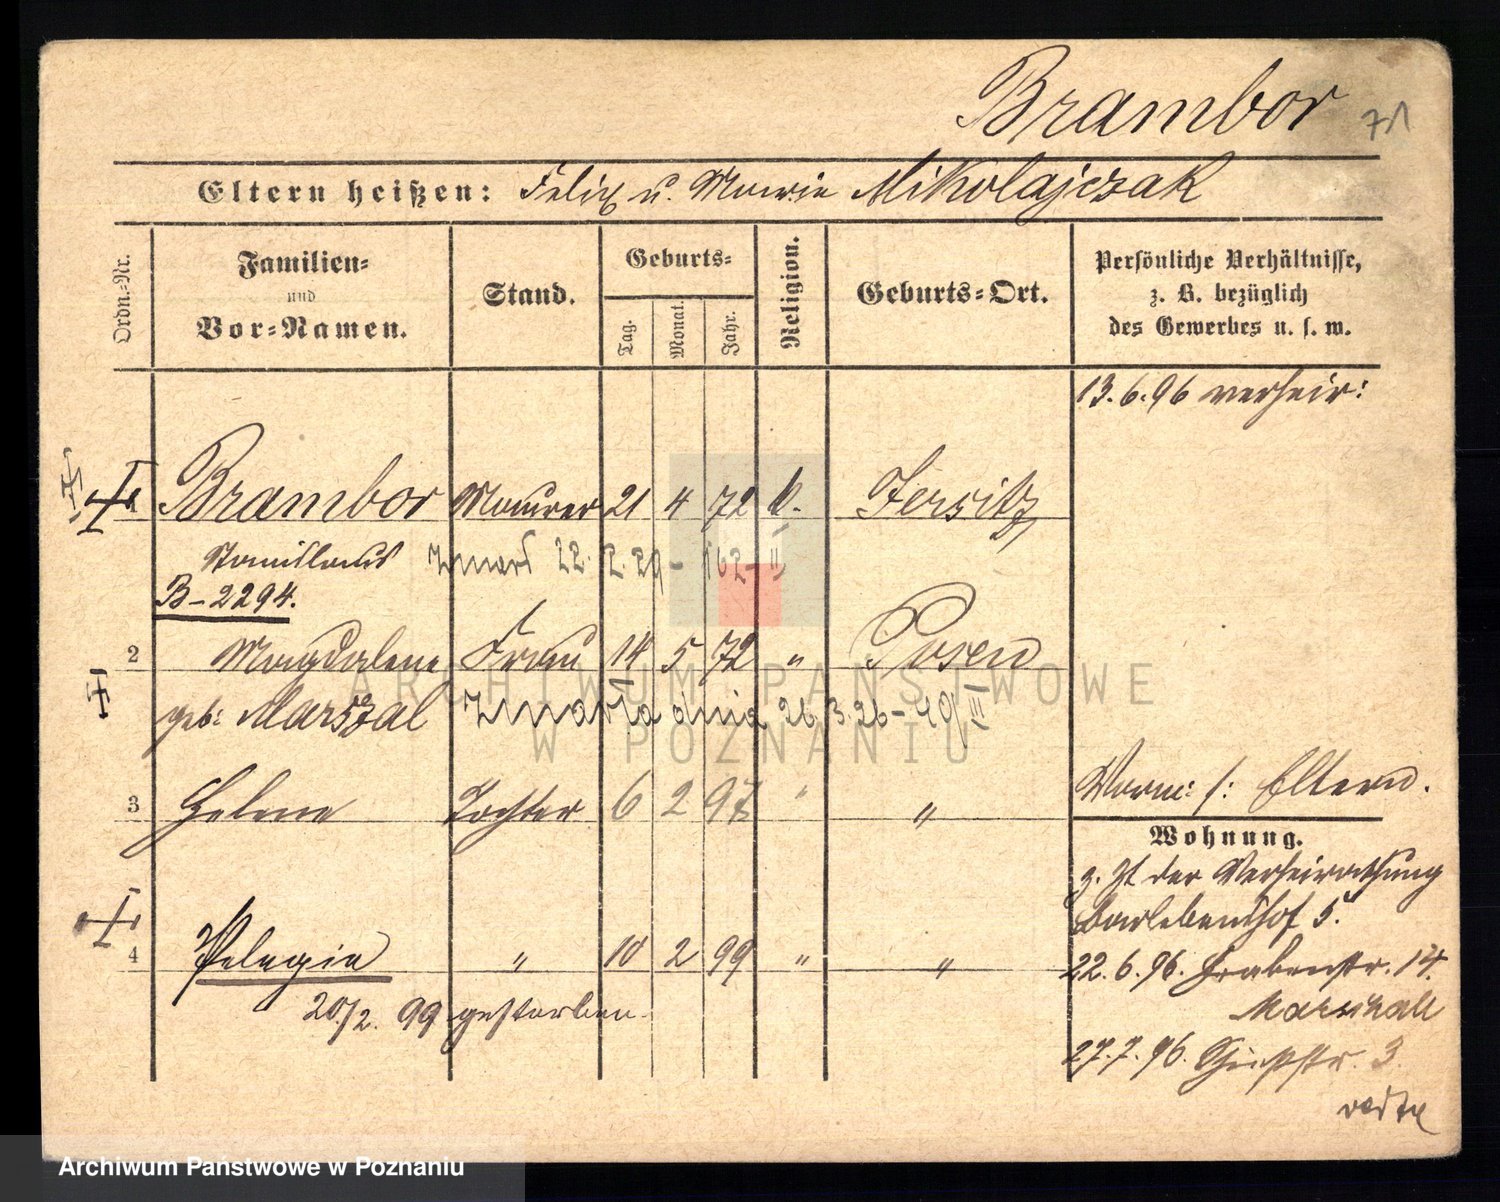 Brambor
71
Eltern heißen: Felix u. Marie Mikolajczak
Ordn.-Nr.
Familien-
und
Vor-Namen.
Stand.
Geburts-
Tag.
Monat.
Jahr.
Religion.
Geburts-Ort.
Persönliche Verhältnisse,
z. B. bezüglich
des Gewerbes u. s. w.
13.6.96 verheir:
Brambor Maurer 21 4 72 k. Jersitz
Stanislaus zmarł 22. 2. 29 - 162 - II
B-2294.
2 Magdalene Frau 14 5 72 " Posen
geb: Marszal zmarła dnia 26.3.26 - 49/III
3 Helene Tochter 6 2 97 " "
Vorm: s: Eltern.
Wohnung.
z. Zt der Verheirathung
Barlebenshof 5.
4 Pelagia " 10 2 99 " "
22.6.96. Grabenstr. 14.
Marschall
20/2. 99 gestorben.
27.7.96. 3.
ARCHIWUM PAŃSTWOWE
W POZNANIU
Archiwum Państwowe w Poznaniu